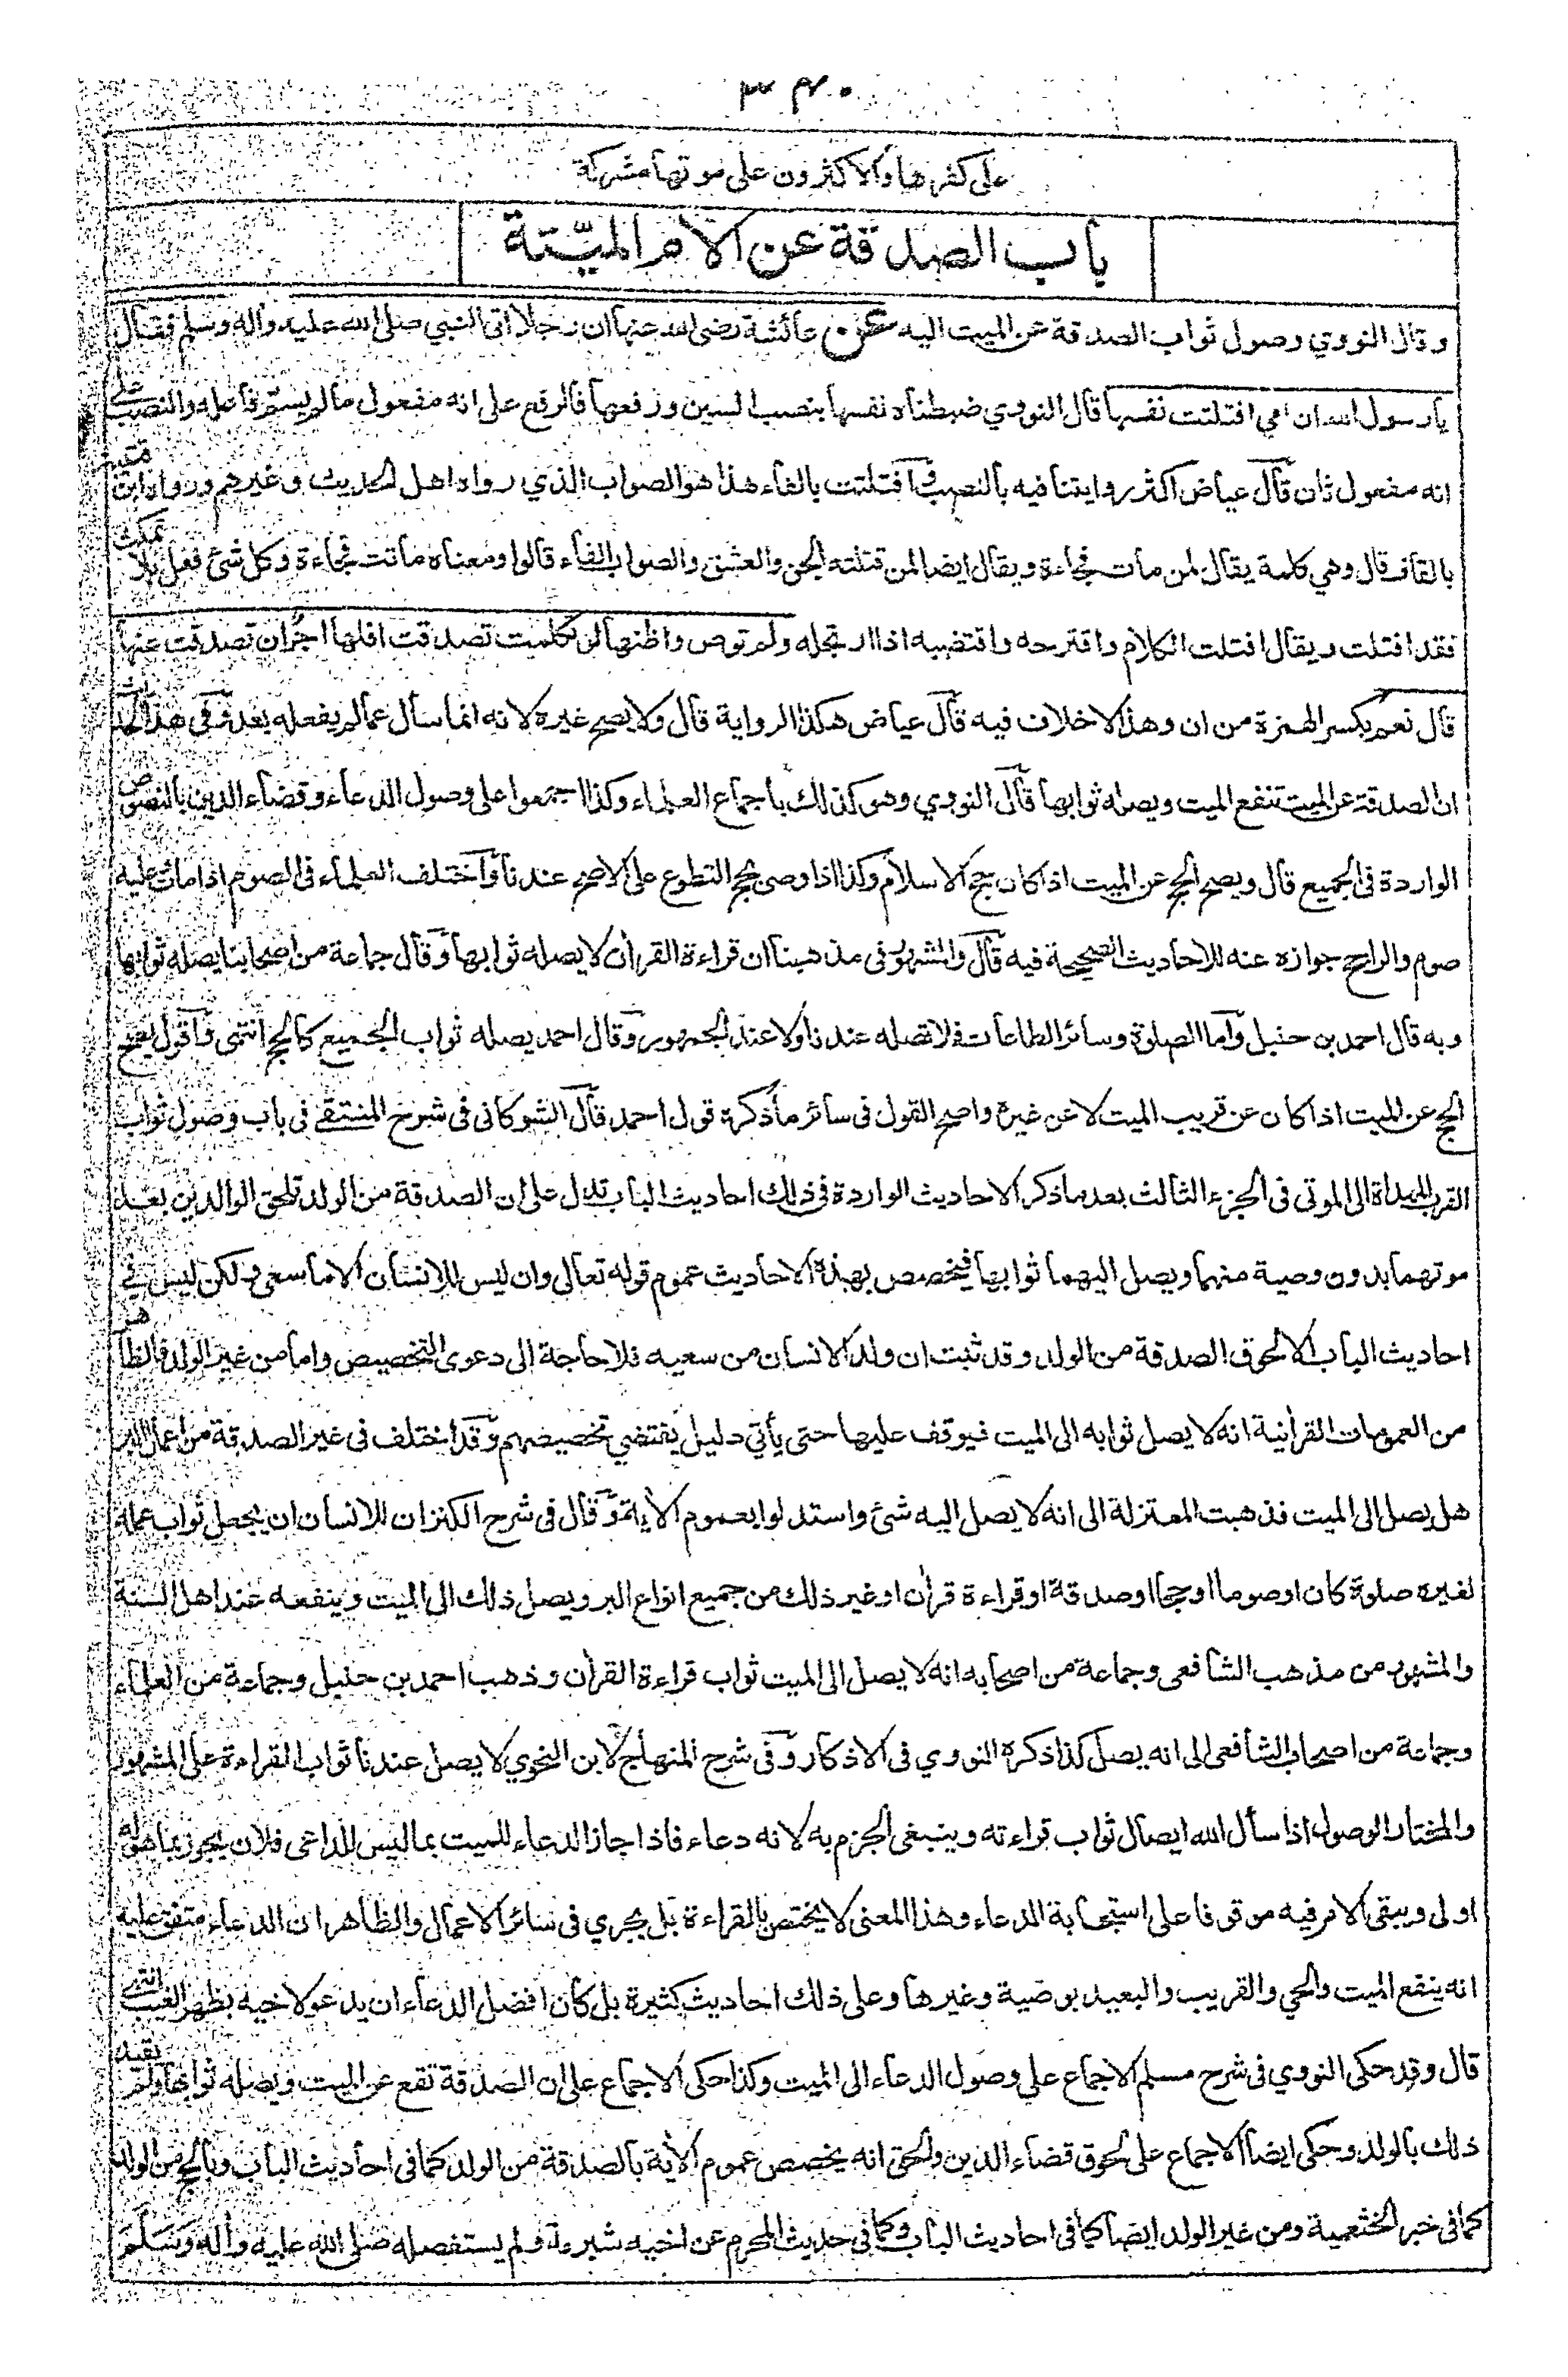 ٣٤٠
على كفرها والاكثرون على موتها مشركة
باب الصدقة عن الام الميّتة
وقال النووي وصول ثواب الصدقة عن الميت اليه عن عائشة رضى الله عنها ان رجلا اتى النبي صلى الله عليه واله وسلم فقال
يا رسول الله ان امي افتلتت نفسها قال النووي ضبطناه نفسها بنصب السين ورفعها فالرفع على انه مفعول مالم يسم فاعله والنصب على
انه مفعول ثان قال عياض اكثر روايتنا فيه بالنصب وافتلتت بالفاء هذا هو الصواب الذي رواه اهل الحديث وغيرهم ورواه ابن قتيبة
بالقاف قال وهي كلمة يقال لمن مات فجاءة ويقال ايضا لمن قتلته الجن والعشق والصواب الفاء قالوا ومعناه ماتت فجاءة وكل شئ فعل بلا تمكث
فقد افتلت ويقال افتلت الكلام واقترحه واقتضبه اذا ارتجله ولم توص واظنها لو تكلمت تصدقت افلها اجر ان تصدقت عنها
قال نعم بكسر الهمزة من ان وهذا لا خلاف فيه قال عياض هكذا الرواية قال ولا يصح غيره لانه انما سأل عما لم يفعله بعد وفى هذا الحديث
ان الصدقة عن الميت تنفع الميت ويصله ثوابها قال النووي وهو كذلك باجماع العلماء وكذا اجمعوا على وصول الدعاء وقضاء الدين بالنصوص
الواردة فى الجميع قال ويصح الحج عن الميت اذا كان حج الاسلام وكذا اذا وصى بحج التطوع على الاصح عندنا واختلف العلماء فى الصوم اذا مات وعليه
صوم والراجح جوازه عنه للاحاديث الصحيحة فيه قال والمشهور فى مذهبنا ان قراءة القران لا يصله ثوابها وقال جماعة من اصحابنا يصله ثوابها
وبه قال احمد بن حنبل واما الصلوة وسائر الطاعات فلا تصله عندنا ولا عند الجمهور وقال احمد يصله ثواب الجميع كالحج انتهى واقول يصح
الحج عن الميت اذا كان عن قريب الميت لا عن غيره واصح القول فى سائر ما ذكره قول احمد قال الشوكانى فى شرح المنتقى فى باب وصول ثواب
القرب المهداة الى الموتى فى الجزء الثالث بعد ما ذكر الاحاديث الواردة فى ذلك احاديث الباب تدل على ان الصدقة من الولد تلحق الوالدين بعد
موتهما بدون وصية منهما ويصل اليهما ثوابها فيخصص بهذه الاحاديث عموم قوله تعالى وان ليس للانسان الا ما سعى ولكن ليس في
احاديث الباب الا لحوق الصدقة من الولد وقد ثبت ان ولد الانسان من سعيه فلا حاجة الى دعوى التخصيص واما من غير الولد فالظاهر
من العمومات القرانية انه لا يصل ثوابه الى الميت فيوقف عليها حتى يأتي دليل يقتضي تخصيصهم وقد اختلف فى غير الصدقة من اعمال البر
هل يصل الى الميت فذهبت المعتزلة الى انه لا يصل اليه شئ واستدلوا بعموم الاية وقال فى شرح الكنز ان للانسان ان يجعل ثواب عمله
لغيره صلوة كان او صوما او حجا او صدقة او قراءة قران او غير ذلك من جميع انواع البر ويصل ذلك الى الميت وينفعه عند اهل السنة
والمشهور من مذهب الشافعى وجماعة من اصحابه انه لا يصل الى الميت ثواب قراءة القران وذهب احمد بن حنبل وجماعة من العلماء
وجماعة من اصحاب الشافعى الى انه يصل كذا ذكره النووي فى الاذكار وفى شرح المنهاج لابن النحوي لا يصل عندنا ثواب القراءة على المشهور
والمختار الوصول اذا سأل الله ايصال ثواب قراءته وينبغى الجزم به لانه دعاء فاذا جاز الدعاء للميت بما ليس للداعى فلان يجوز بما هو له
اولى ويبقى الامر فيه موقوفا على استجابة الدعاء وهذا المعنى لا يختص بالقراءة بل يجري فى سائر الاعمال والظاهر ان الدعاء متفق عليه
انه ينفع الميت والحي والقريب والبعيد بوصية وغيرها وعلى ذلك احاديث كثيرة بل كان افضل الدعاء ان يدعو لاخيه بظهر الغيب انتهى
قال وقد حكى النووي فى شرح مسلم الاجماع على وصول الدعاء الى الميت وكذا حكى الاجماع على ان الصدقة تقع عن الميت ويصله ثوابها ولم يقيد
ذلك بالولد وحكى ايضا الاجماع على لحوق قضاء الدين والحق انه يخصص عموم الاية بالصدقة من الولد كما فى احاديث الباب وبالحج من الولد
كما فى خبر الخثعمية ومن غير الولد ايضا كما فى احاديث الباب وكما فى حديث المحرم عن اخيه شبرمة ولم يستفصله صلى الله عليه واله وسلم